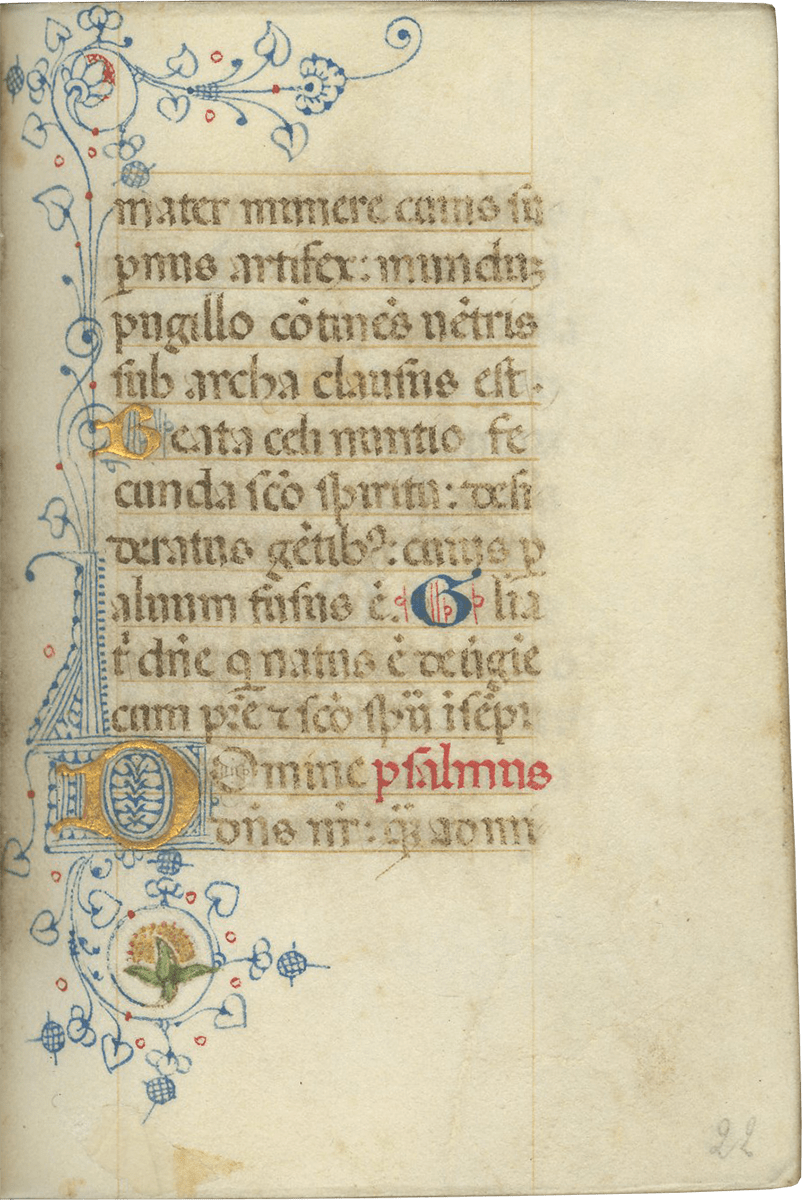 mater munere cuius su
pnus artifex: munduz
pugillo cōtinēs uētris
sub archa clausus est.
Beata celi nuntio fe
cunda sc̄o spiritu: desi
deratus gētibꝰ: cuius p
aluum fusus ē. Glia
t̄ dn̄e q natus ē deūgīe
cum pr̄e ⁊ sc̄o sp̄ū ī sēpi
Domine psalmus
dn̄s nr̄: q̄ȝ admi
22